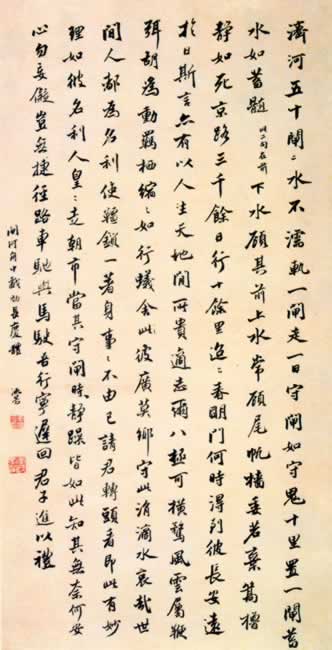 濟河五十閘﹅水不濡軌一閘走一日守閘如守鬼十里置一閘蓄
水如蓄髓 以二句在前 下水顧其前上水常顧尾帆檣委若棄篙櫓
靜如死京路三千餘日行十餘里迢﹅春明門何時得到彼長安遠
於日斯言亦有以人生天地間所貴適志爾八極可橫騖風雲屬鞭
弭胡為動羈栖縮﹅如行蟻舍此彼廣莫鄉守此涓滴水哀哉世
間人都為名利使韁鎖一著身事﹅不由己請君轉頭看即此有妙
理如彼名利人皇﹅走朝市當其守閘時靜躁皆如此知其無奈何安
心勿妄儗豈無捷徑路車馳與馬駛古行寧遲回君子進以禮
閘河舟中戲効長慶體